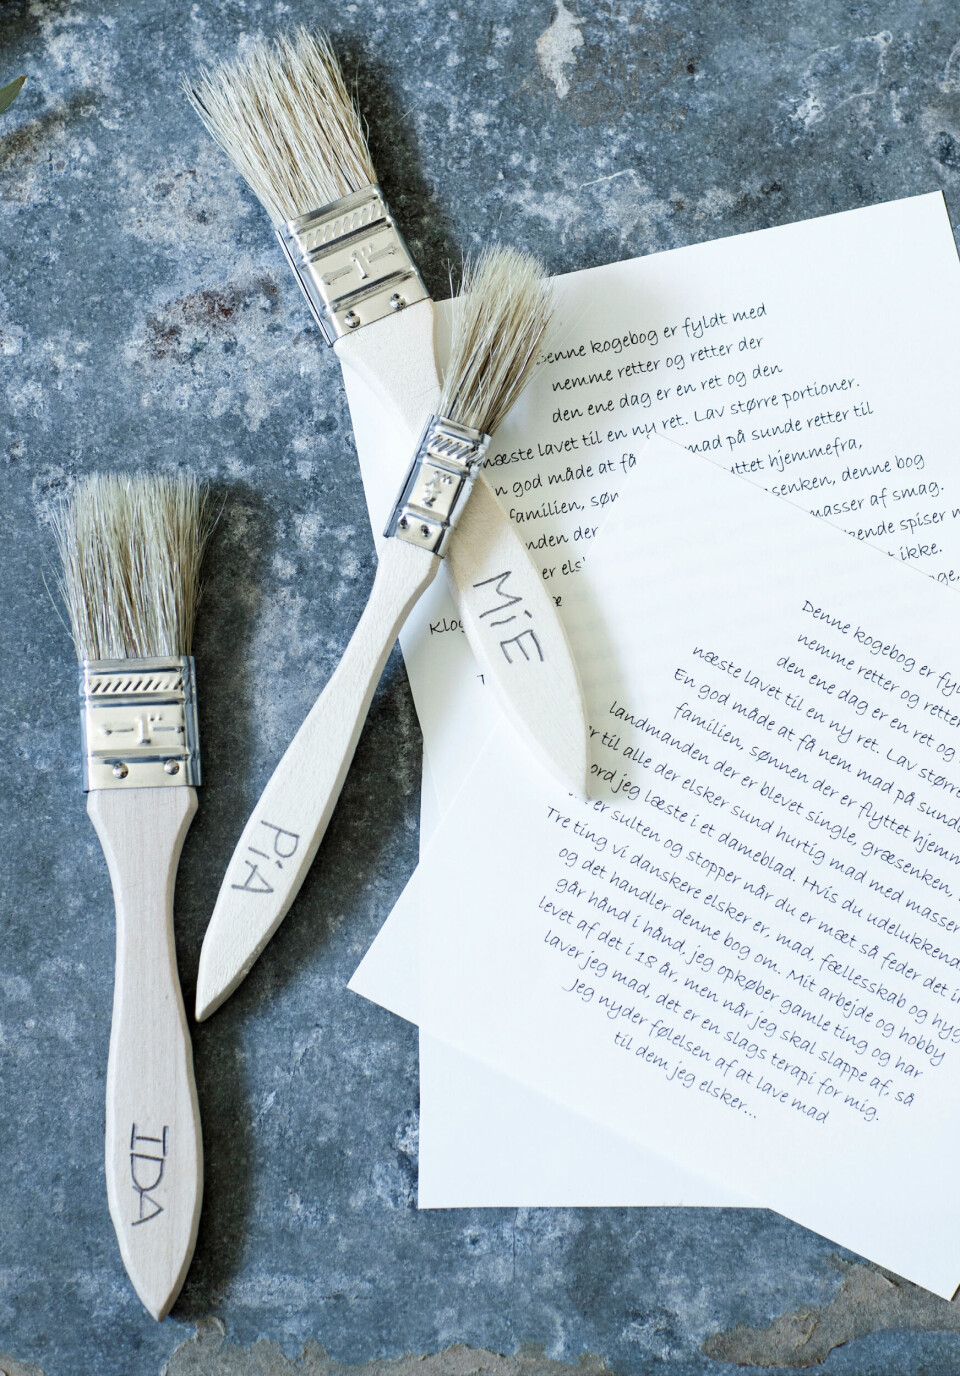 1"
Denne kogebog er fyldt med
nemme retter og retter der
den ene dag er en ret og den
næste lavet til en ny ret. Lav større portioner.
n god måde at få mad på sunde retter til
familien, søn yttet hjemmefra,
nden der senken, denne bog
er els masser af smag.
ende spiser
t ikke.
ge,
Klog
MiE
PiA
1"
IDA
Denne kogebog er fyl
nemme retter og retter
den ene dag er en ret og
næste lavet til en ny ret. Lav større
En god måde at få nem mad på sund
familien, sønnen der er flyttet hjemm
landmanden der er blevet single, græsenken,
r til alle der elsker sund hurtig mad med masser
ord jeg læste i et dameblad. Hvis du udelukkend
er sulten og stopper når du er mæt så feder det i
Tre ting vi danskere elsker er, mad, fællesskab og hyg
og det handler denne bog om. Mit arbejde og hobby
går hånd i hånd, jeg opkøber gamle ting og har
levet af det i 18 år, men når jeg skal slappe af, så
laver jeg mad, det er en slags terapi for mig.
Jeg nyder følelsen af at lave mad
til dem jeg elsker...